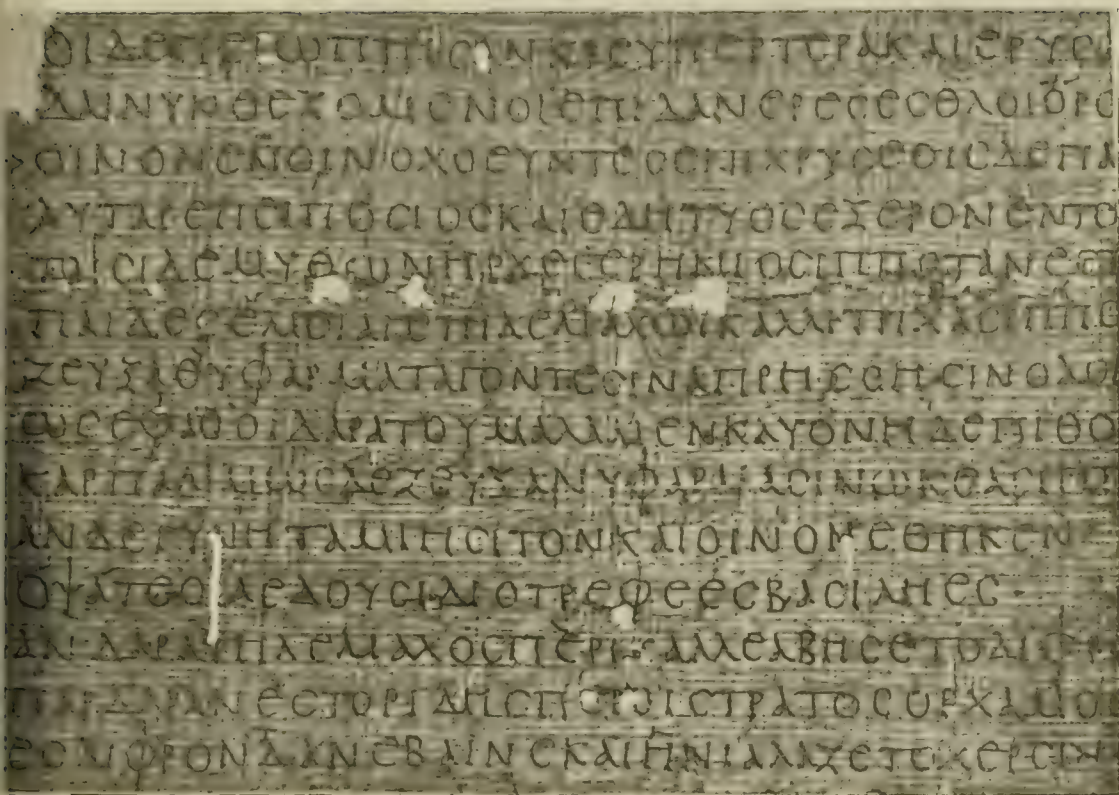 ΟΙΔΕΠΕΙΩΠΤΗϹΑΝΚΡΕΥΠΕΡΤΕΡΑΚΑΙΕΡΥϹΑ
ΔΑΙΝΥΝΘΕΖΟΜΕΝΟΙΕΠΙΔΑΝΕΡΕϹΕϹΘΛΟΙΟΡΟ
ΟΙΝΟΝΕΝΟΙΝΟΧΟΕΥΝΤΕϹΕΝΙΧΡΥϹΕΟΙϹΔΕΠΑ
ΑΥΤΑΡΕΠΕΙΠΟϹΙΟϹΚΑΙΕΔΗΤΥΟϹΕΞΕΡΟΝΕΝΤΟ
ΤΟΙϹΙΔΕΜΥΘΩΝΗΡΧΕΓΕΡΗΝΙΟϹΙΠΠΟΤΑΝΕϹΤ
ΠΑΙΔΕϹΕΜΟΙΑΓΕΤΗΛΕΜΑΧΩΙΚΑΛΛΙΤΡΙΧΑϹΙΠΠΟ
ΖΕΥΞΑΘΥΦΑΡΜΑΤΑΓΟΝΤΕϹΙΝΑΠΡΗϹϹΗϹΙΝΟΔΟΙ
ΩϹΕΦΑΘΟΙΔΑΡΑΤΟΥΜΑΛΑΜΕΝΚΛΥΟΝΗΔΕΠΙΘΟ
ΚΑΡΠΑΛΙΜΩϹΔΕΖΕΥΞΑΝΥΦΑΡΜΑϹΙΝΩΚΕΑϹΙΠΠ
ΑΝΔΕΓΥΝΗΤΑΜΙΗϹΙΤΟΝΚΑΙΟΙΝΟΝΕΘΗΚΕΝ
ΟΨΑΤΕΟΙΑΕΔΟΥϹΙΔΙΟΤΡΕΦΕΕϹΒΑϹΙΛΗΕϹ
ΑΝΔΑΡΑΤΗΛΕΜΑΧΟϹΠΕΡΙΚΑΛΛΕΑΒΗϹΕΤΟΔΙΦΡ
ΠΑΡΔΑΡΑΝΕϹΤΟΡΙΔΗϹΠΙϹΙϹΤΡΑΤΟϹΟΡΧΑΜΟϹ
ΕϹΔΙΦΡΟΝΔΑΝΕΒΑΙΝΕΚΑΙΗΝΙΑΛΑΖΕΤΟΧΕΡϹΙΝ